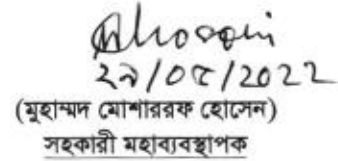 ২৯/০৫/২০২২
(মুহাম্মদ মোশাররফ হোসেন)
সহকারী মহাব্যবস্থাপক